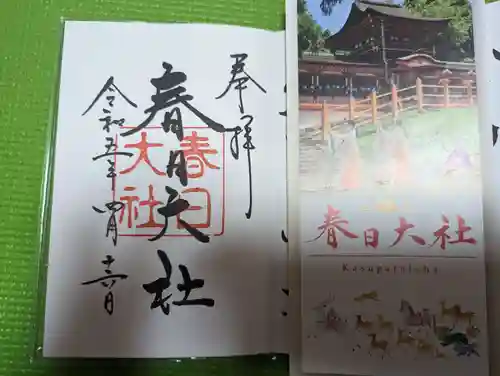 奉拝
春日大社
春日
大社
令和五年四月十六日
春日大社
Kasugataisha